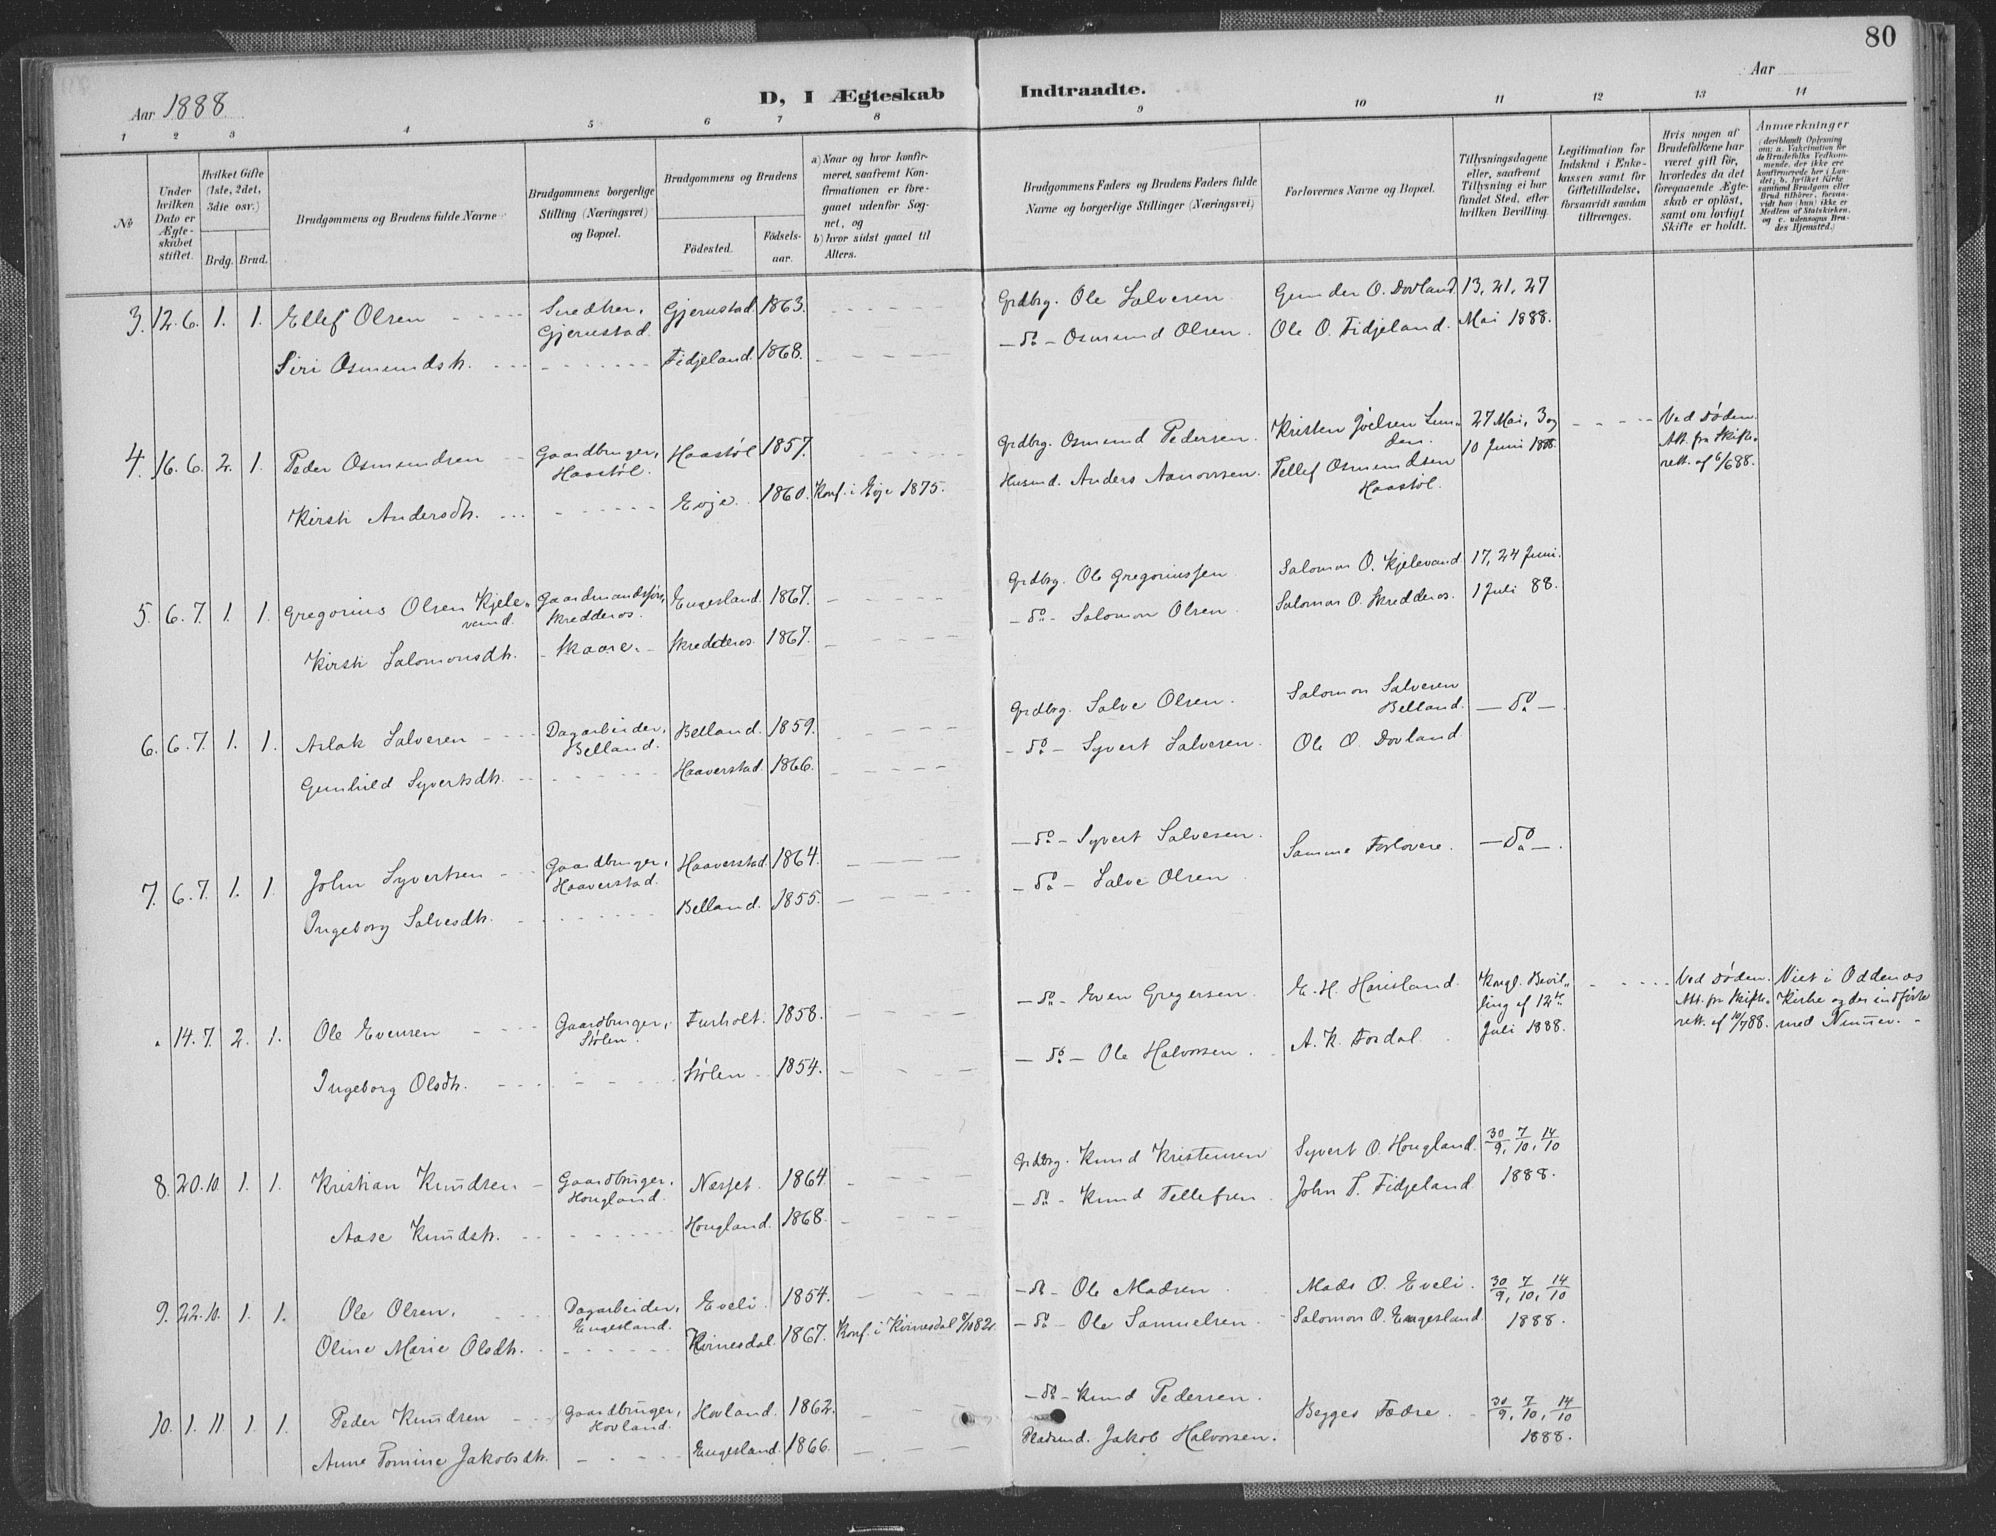 80
Aar 1888
D, I Ægteskab Indtraadte.
Aar
1 2 3 4 5 6 7 8 9 10 11 12 13 14
№
Under hvilken Dato er Ægteskabet stiftet.
Hvilket Gifte (1ste, 2det, 3die osv.)
Brdg. Brud.
Brudgommens og Brudens fulde Navne
Brudgommens borgerlige Stilling (Næringsvei) og Bopæl.
Brudgommens og Brudens
Födested. Födselsaar.
a) Naar og hvor konfirmeret, saafremt Konfirmationen er foregaaet udenfor Sognet, og
b) hvor sidst gaaet til Alters.
Brudgommens Faders og Brudens Faders fulde Navne og borgerlige Stillinger (Næringsvei)
Forlovernes Navne og Bopæl.
Tillysningsdagene eller, saafremt Tillysning ei har fundet Sted, efter hvilken Bevilling.
Legitimation for Indskud i Enkekassen samt for Giftetilladelse, forsaavidt saadan tiltrænges.
Hvis nogen af Brudefolkene har været gift för, hvorledes da det foregaaende Ægteskab er oplöst, samt om lovligt Skifte er holdt.
Anmærkninger
(deriblandt Oplysning om: a. Vakcination for de Brudefolks Vedkommende, der ikke ere konfirmerede her i Landet; b. hvilket Kirkesamfund Brudgom eller Brud tilhörer, forsaavidt han (hun) ikke er Medlem af Statskirken, og c. udensogns Brudes Hjemsted.)
3. 12. 6. 1. 1. Ellef Olsen Smedhen, Gjerustad. Gjerustad 1863. Grdbrg. Ole Salvesen. Gunder O. Dovland 13, 21, 27
Siri Osmundsdt. Fidjeland. 1868. -do- Osmund Olsen. Ole O. Fidjeland. Mai 1888.
4. 16. 6. 2. 1. Peder Osmundsen Gaardbruger, Haastøl. Haastøl 1857. Grdbrg. Osmund Pedersen. Kristen Joelsen Lunden. 27 Mai, 3 og Ved Døden.
Kirsti Andersdt. Evje. 1860. Konf. i Evje 1875. Husmd. Anders Aanonsen. Tellef Osmundsen Haastøl. 10 Juni 1888. Att. fra Skifteret. af 6/6 88.
5. 6. 7. 1. 1. Gregorius Olsen Kjelevand. Gaardmandsføn, Skredderos. Engesland. 1867. Grdbrg. Ole Gregoriussen Salomon O. Kjelevand 17, 24 Juni.
Kirsti Salomonsdt. Skaare. Skredderos. 1867. -do- Salomon Olsen. Salomon O. Skredderos. 1 Juli 88.
6. 6. 7. 1. 1. Aslak Salvesen Dagarbeider, Belland. Belland. 1859. Grdbrg. Salve Olsen. Salomon Salvesen Belland. -do-.
Gunhild Syvertsdt. Haaverstad 1866. -do- Syvert Salvesen. Ole O. Dovland
7. 6. 7. 1. 1. John Syvertsen Gaardbruger, Haaverstad. Haaverstad 1864. -do- Syvert Salvesen. Samme Forlovere. -do-.
Ingeborg Salvesdt. Belland. 1855. -do- Salve Olsen.
14. 7. 2. 1. Ole Evensen Gaardbruger, Stølen. Furholt. 1858. -do- Even Gregersen. E. H. Hørisland. Kongl. Bevilling af 12te Juli 1888. Ved Døden. Att. fra Skifteret. af 10/7 88. Viet i Oddenæs Kirke og der indført med Nummer.
Ingeborg Olsdt. Stølen. 1854. -do- Ole Halvorsen. A. K. Fosdal.
8. 20. 10. 1. 1. Kristian Knudsen Gaardbruger, Hougland. Næsset. 1864 Grdbrg. Knud Kristensen Syvert O. Hougland. 30/9, 7/10, 14/10
Aase Knudsdt. Hougland. 1868. -do- Knud Tellefsen. John T. Fidjeland. 1888.
9. 22. 10. 1. 1. Ole Olsen, Dagarbeider, Engesland. Eveli. 1854. -do- Ole Madsen Mads O. Eveli. 30/9, 7/10, 14/10
Oline Marie Olsdt. Kvinesdal. 1867. Konf. i Kvinesdal 8/10 82. -do- Ole Samuelsen. Salomon O. Engesland. 1888.
10. 1. 11. 1. 1. Peder Knudsen Gaardbruger, Hovland. Hovland. 1862. -do- Knud Pedersen. Begges Fædre. 30/9, 7/10, 14/10
Anne Tomine Jakobsdt. Engesland. 1866. Pladsmd. Jakob Halvorsen. 1888.